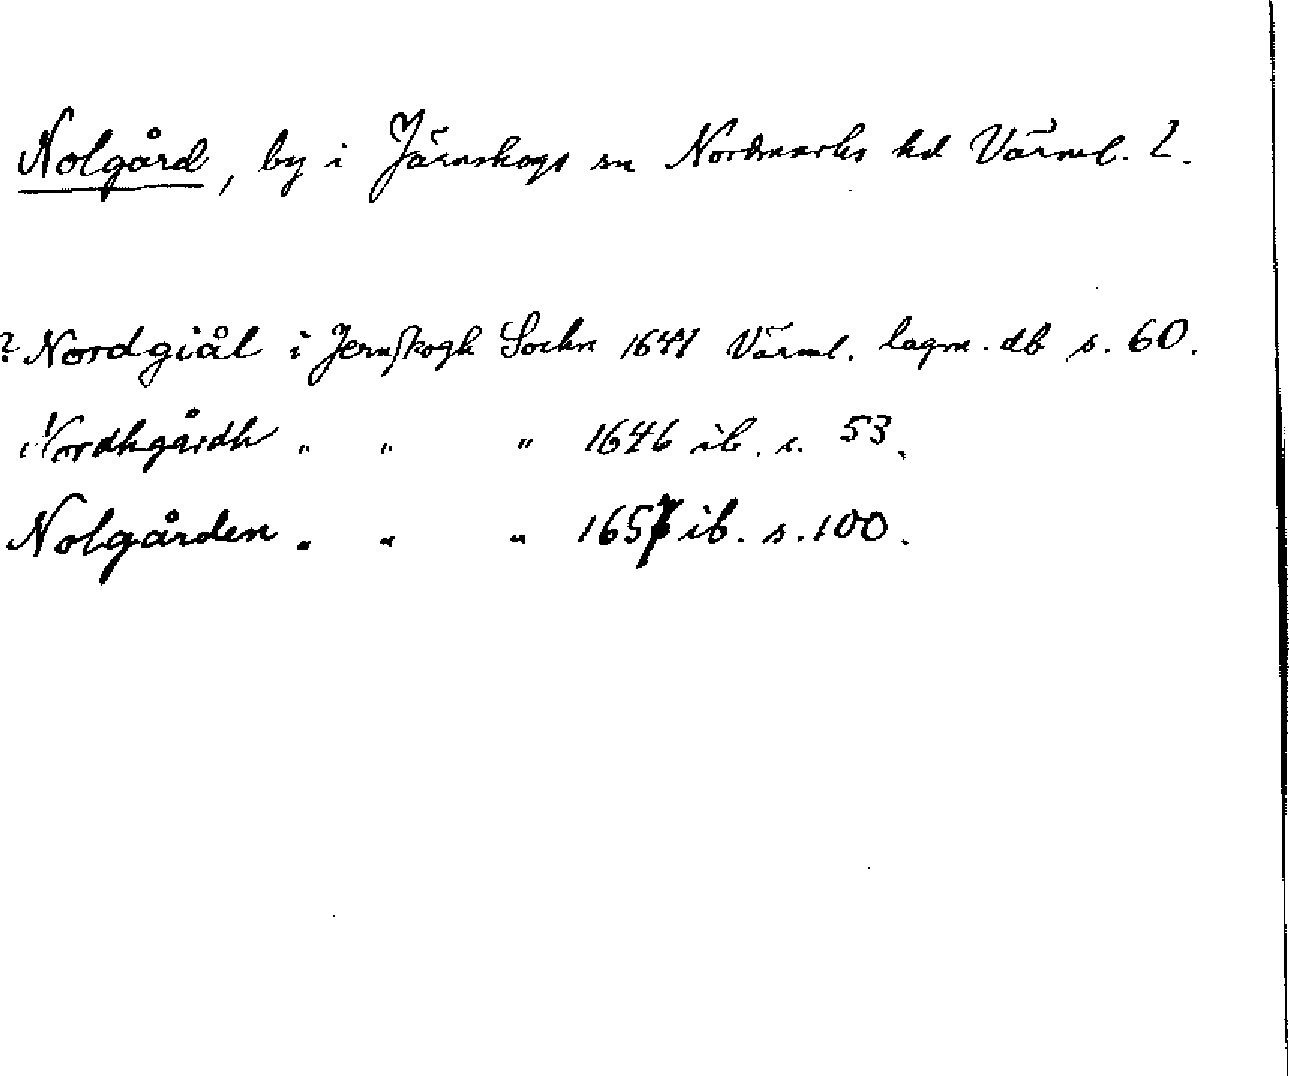 Nolgård, by i Järnskogs sn Nordmarks hd Värml. L.
? Nordgiäl i Jernskogh Sochn 1641 Värml. lagm. db s. 60.
Nordhgårdh " " " 1646 ib. s. 53.
Nolgården " " " 1657 ib. s. 100.